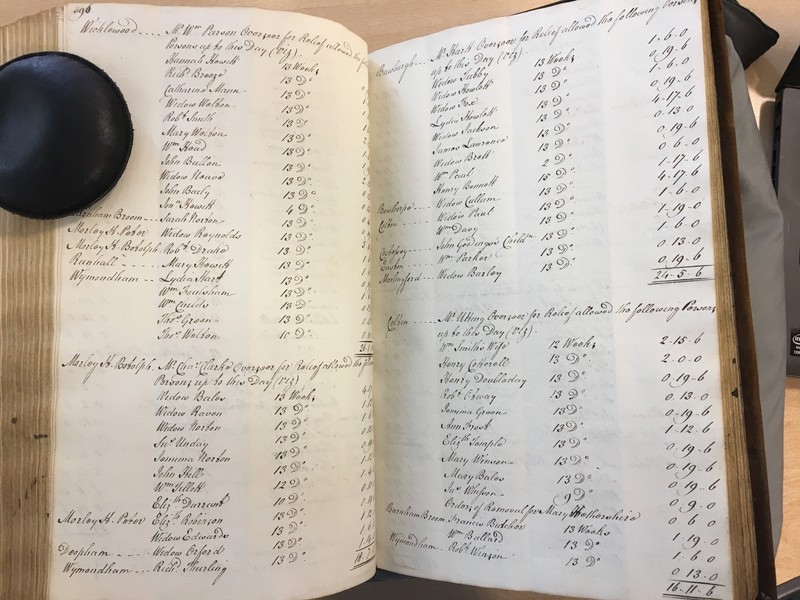 396
Wicklewood .... Mr Wm Parson Overseer for Relief allowed the
Persons up to this Day (Viz)
Hannah Howitt 13 Weeks
Richd Breeze 13 Do
Catharine Mann 13 Do
Widow Walton 13 Do
Robt Smith 13 Do
Mary Warton 13 Do
Wm Head 13 Do
John Bullon 13 Do
Widow House 13 Do
John Barly 13 Do
Howitt 4 Do
Barnham Broom --- Sarah Norton 13 Do
Morley St Peter Widow Reynolds 13 Do
Morley St Botolph Robt Drake 13 Do
Runhall ---- Mary Howitt 13 Do
Wymondham --- Lydia Harp 13 Do
Wm Foulsham 13 Do
Wm Childs 13 Do
Thos Green 13 Do
Thos Walton 10 Do
Morley St Botolph. Mr Chas Clarke Overseer for Relief allowed the
Persons up to this Day (Viz)
Widow Bales 13 Weeks
Widow Raven 13 Do
Widow Norton 13 Do
Unday 13 Do
Jemima Norton 13 Do
John Hill 13 Do
Wm Tillett 12 Do
Elizth Durrant 10 Do
Morley St Peter Elizth Robinson 13 Do
Widow Edwards 13 Do
Deopham ---- Widow Orford 13 Do
Wymondham --- Richd Thurling 13 Do
Bawburgh --- Mr Hart Overseer for Relief allowed the following Persons
up to this Day (Viz)
Widow Tubby 13 Weeks 1-6-0
Widow Howlett 13 Do 0-19-6
Widow Fox 13 Do 1-6-0
Lydia Howlett 13 Do 0-19-6
Widow Jackson 13 Do 4-17-6
James Lawrence 13 Do 0-13-0
Widow Brett 13 Do 0-19-6
Wm Paul 2 Do 0-6-0
Henry Bennett 15 Do 1-17-6
Widow Cullum 13 Do 4-17-6
Colton --- Widow Paul 13 Do 1-6-0
Wm Davy 13 Do 1-19-0
Cossey --- John Goslings Childn 13 Do 1-6-0
Easton Wm Parker 13 Do 0-13-0
Widow Barley 13 Do 0-19-6
24-5-6
Colton ---- Mr Utting Overseer for Relief allowed the following Persons
up to this Day (Viz)
Wm Smiths Wife 12 Weeks 2-15-6
Henry Cotterell 13 Do 2-0-0
Henry Doubleday 13 Do 0-19-6
Robt Otway 13 Do 0-13-0
Jemima Green 13 Do 0-19-6
Ann Frost 13 Do 1-12-6
Elizth Temple 13 Do 0-19-6
Mary Winson 13 Do 0-19-6
Mary Bales 13 Do 0-19-6
Whisson 9 Do 0-9-0
Order of Removal for Mary 0-6-0
Barnham Broom Francis Butcher 13 Weeks 1-19-0
Wm Bullard 13 Do 1-6-0
Wymondham --- Robt Weason 13 Do 0-13-0
16-11-6